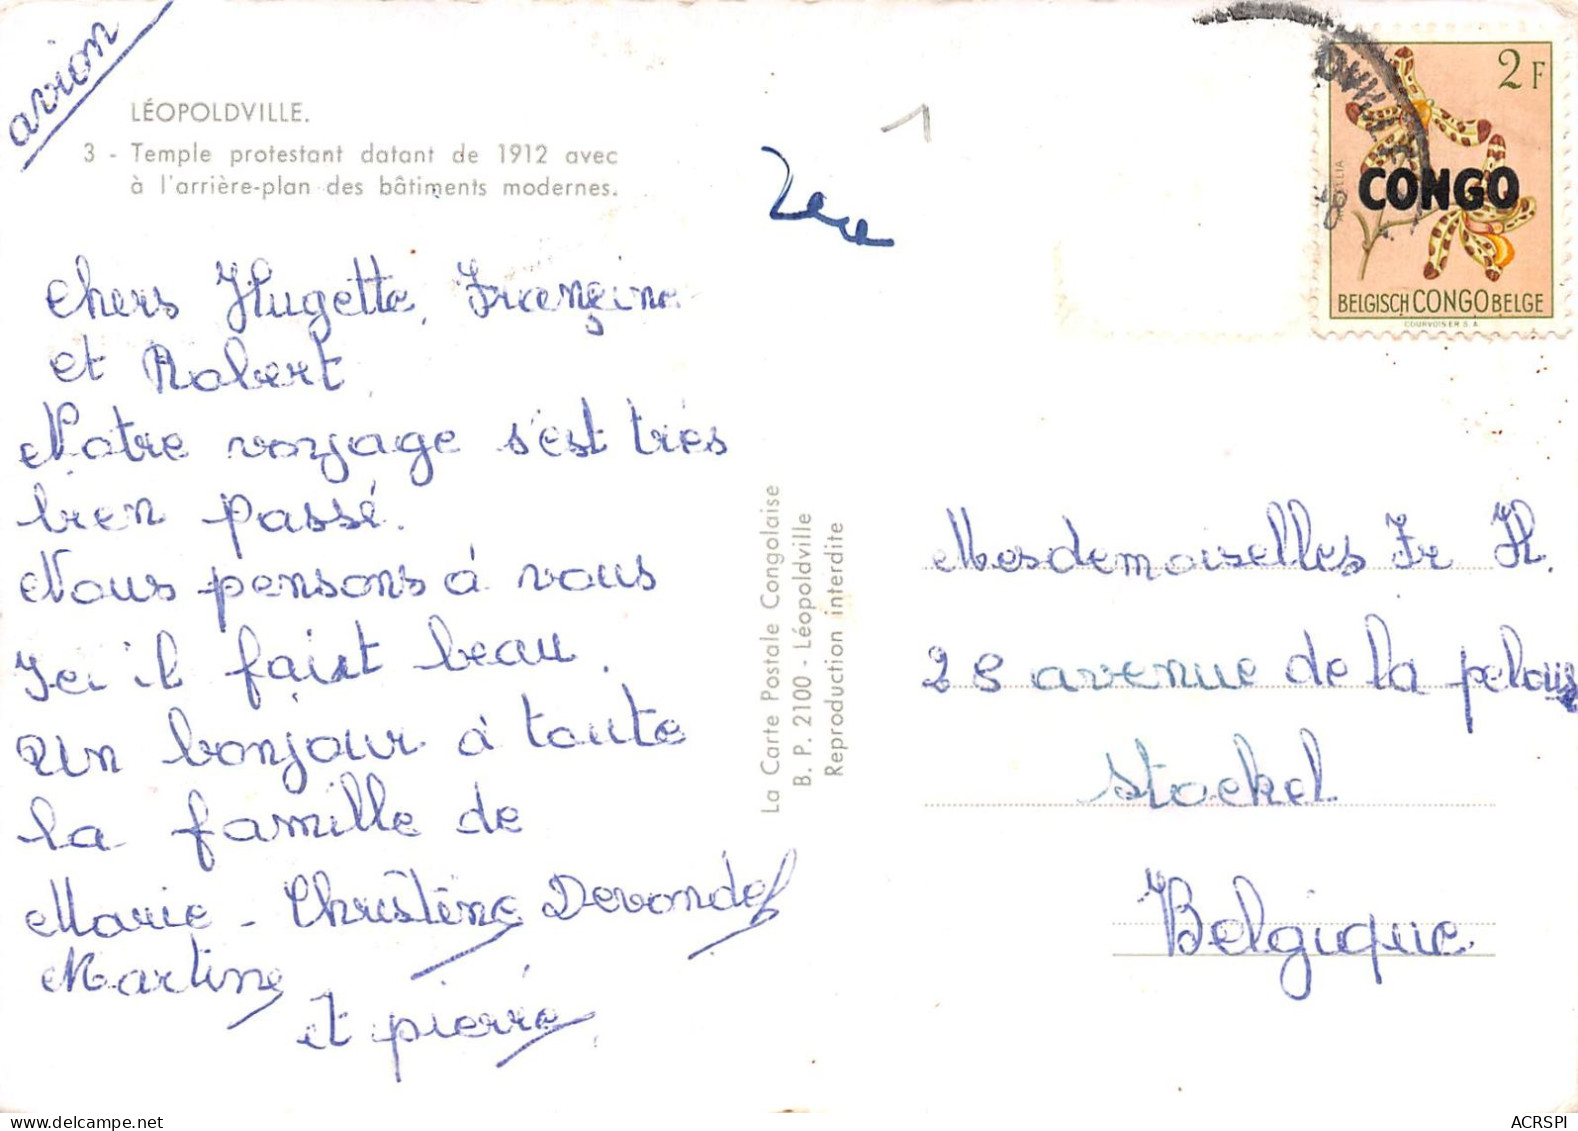 avion
LÉOPOLDVILLE.
3 - Temple protestant datant de 1912 avec
à l'arrière-plan des bâtiments modernes.
1
chers Hugette, Françine
et Robert
Notre voyage s'est très
bien passé.
Nous pensons à vous
Ici il faist beau.
Un bonjour à toute
la famille de
Marie - Christine Devondel
Martine
et pierre
La Carte Postale Congolaise
B. P. 2100 - Léopoldville
Reproduction interdite
2 F
CONGO
BELGISCH CONGO BELGE
COURVOISIER S.A.
Mesdemoiselles Fr H.
28 avenue de la pelous
Stockel
Belgique
ACRSPI